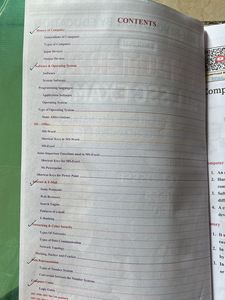 CONTENTS
History of Computer
Generations of Computer
Types of Computer
Input Devices
Output Devices
Software & Operating System
Software
System Software
Programming Languages
Application Software
Operating System
Type of Operating System
Some Abbreviations
MS - Office
MS-Word
Shortcut Keys in MS-Word
MS-Excel
Some Important Functions used in MS-Excel
Shortcut Keys for MS-Excel
Ms Powerpoint
Shortcut Keys for Power Point
Internet & E-Mail
Some Protocols
Web Browsers
Search Engine
Features of e-mail
E-Banking
Networking & Cyber Security
Types Of Networks
Types of Data Communication
Network Topology
Hacking, Hacker and Cracker
Data Representation
Types of Number System
Conversion between the Number Systems
Computer Codes
Logic Gates